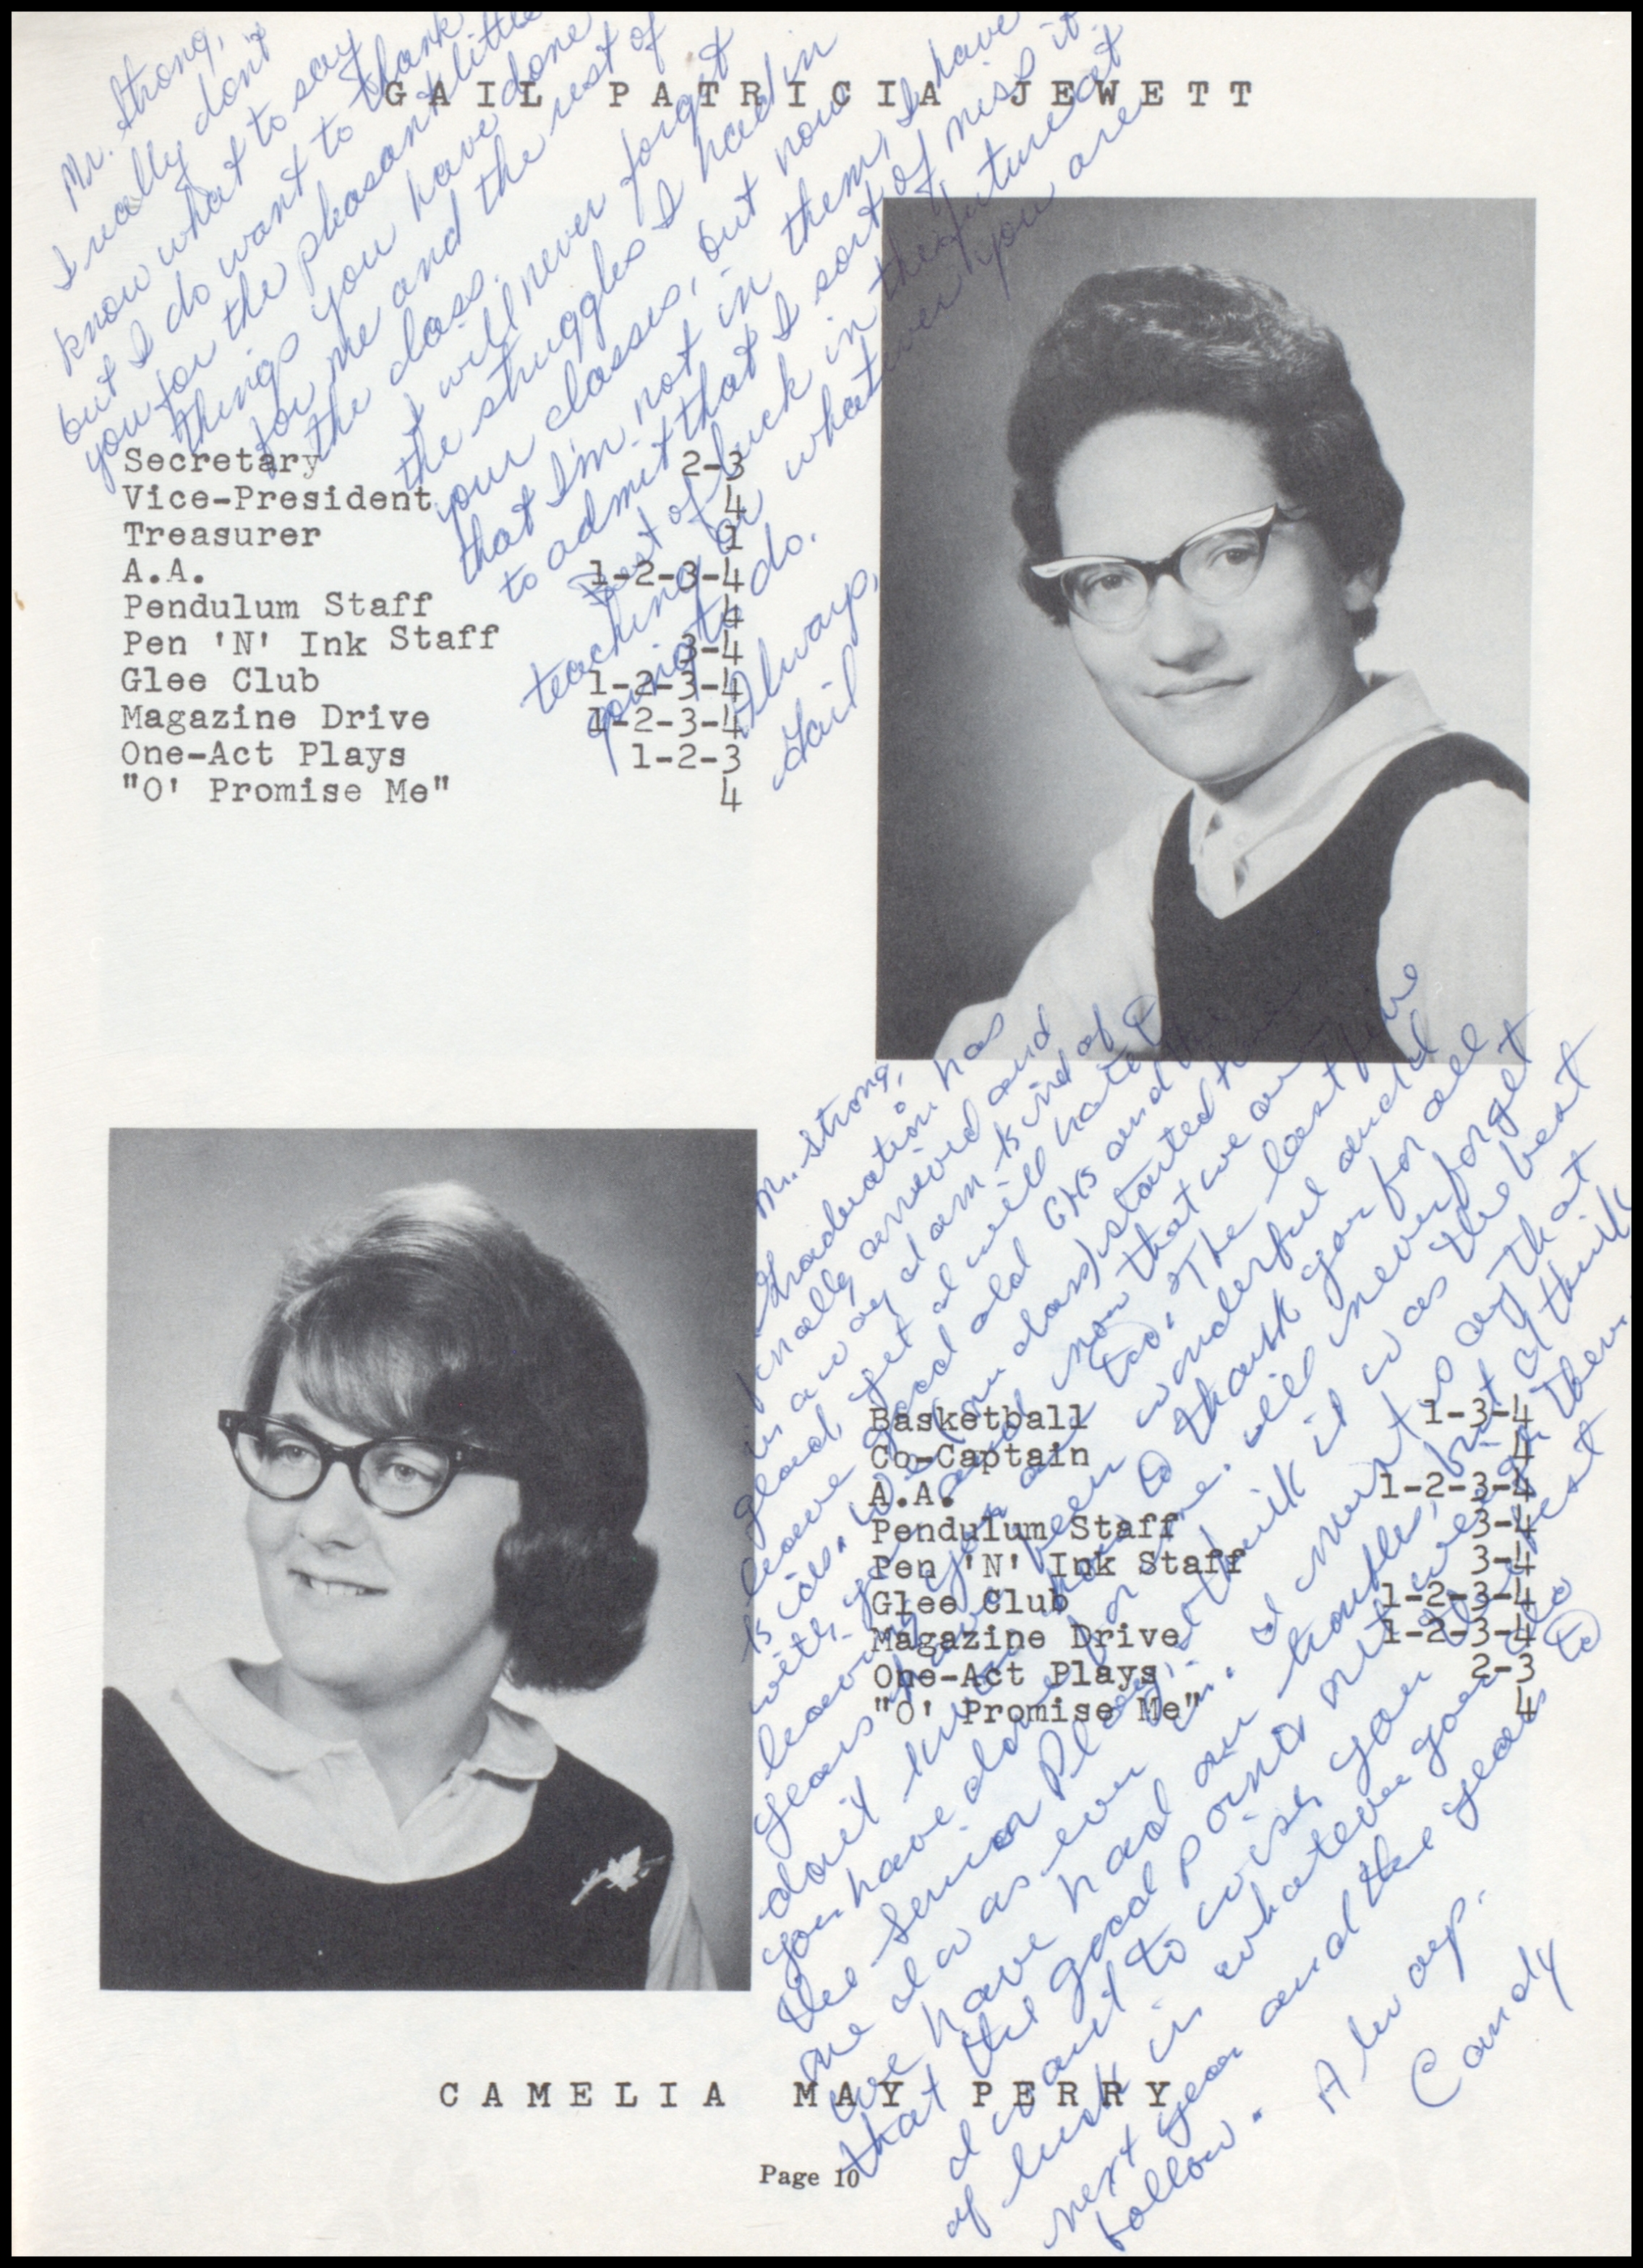 GAIL PATRICIA JEWETT
Mr. Strong,
I really don't
know what to say
but I do want to thank
you for the pleasant little
things you have done
for me and the rest of
the class.
I will never forget
the struggles I had in
your classes, but now
that I'm not in them, I have
to admit that I sort of miss it.
Best of luck in the future at
teaching or whatever you are
going to do.
Always,
Gail
Secretary 2-3
Vice-President 4
Treasurer 1
A.A. 1-2-3-4
Pendulum Staff 4
Pen 'N' Ink Staff 3-4
Glee Club 1-2-3-4
Magazine Drive 1-2-3-4
One-Act Plays 1-2-3
"O' Promise Me" 4
Mr. Strong,
Graduation has
finally arrived and
in a way I am kind of
glad, yet I will hate to
leave good old GHS and the
kids. We (our class) started here
with you and now that we are
leaving you are too. The last five
years have been wonderful and I
don't know how to thank you for all
you have done for me. will never forget
the Senior Play, I think it was the best
one I was ever in. I must say that
we have had our troubles, but I think
that the good points out weigh them.
I want to wish you the best
of luck in whatever you do
next year and the years to
follow.
Always,
Candy
Basketball 1-3-4
Co-Captain 4
A.A. 1-2-3-4
Pendulum Staff 3-4
Pen 'N' Ink Staff 3-4
Glee Club 1-2-3-4
Magazine Drive 1-2-3-4
One-Act Plays 2-3
"O' Promise Me" 4
CAMELIA MAY PERRY
Page 10